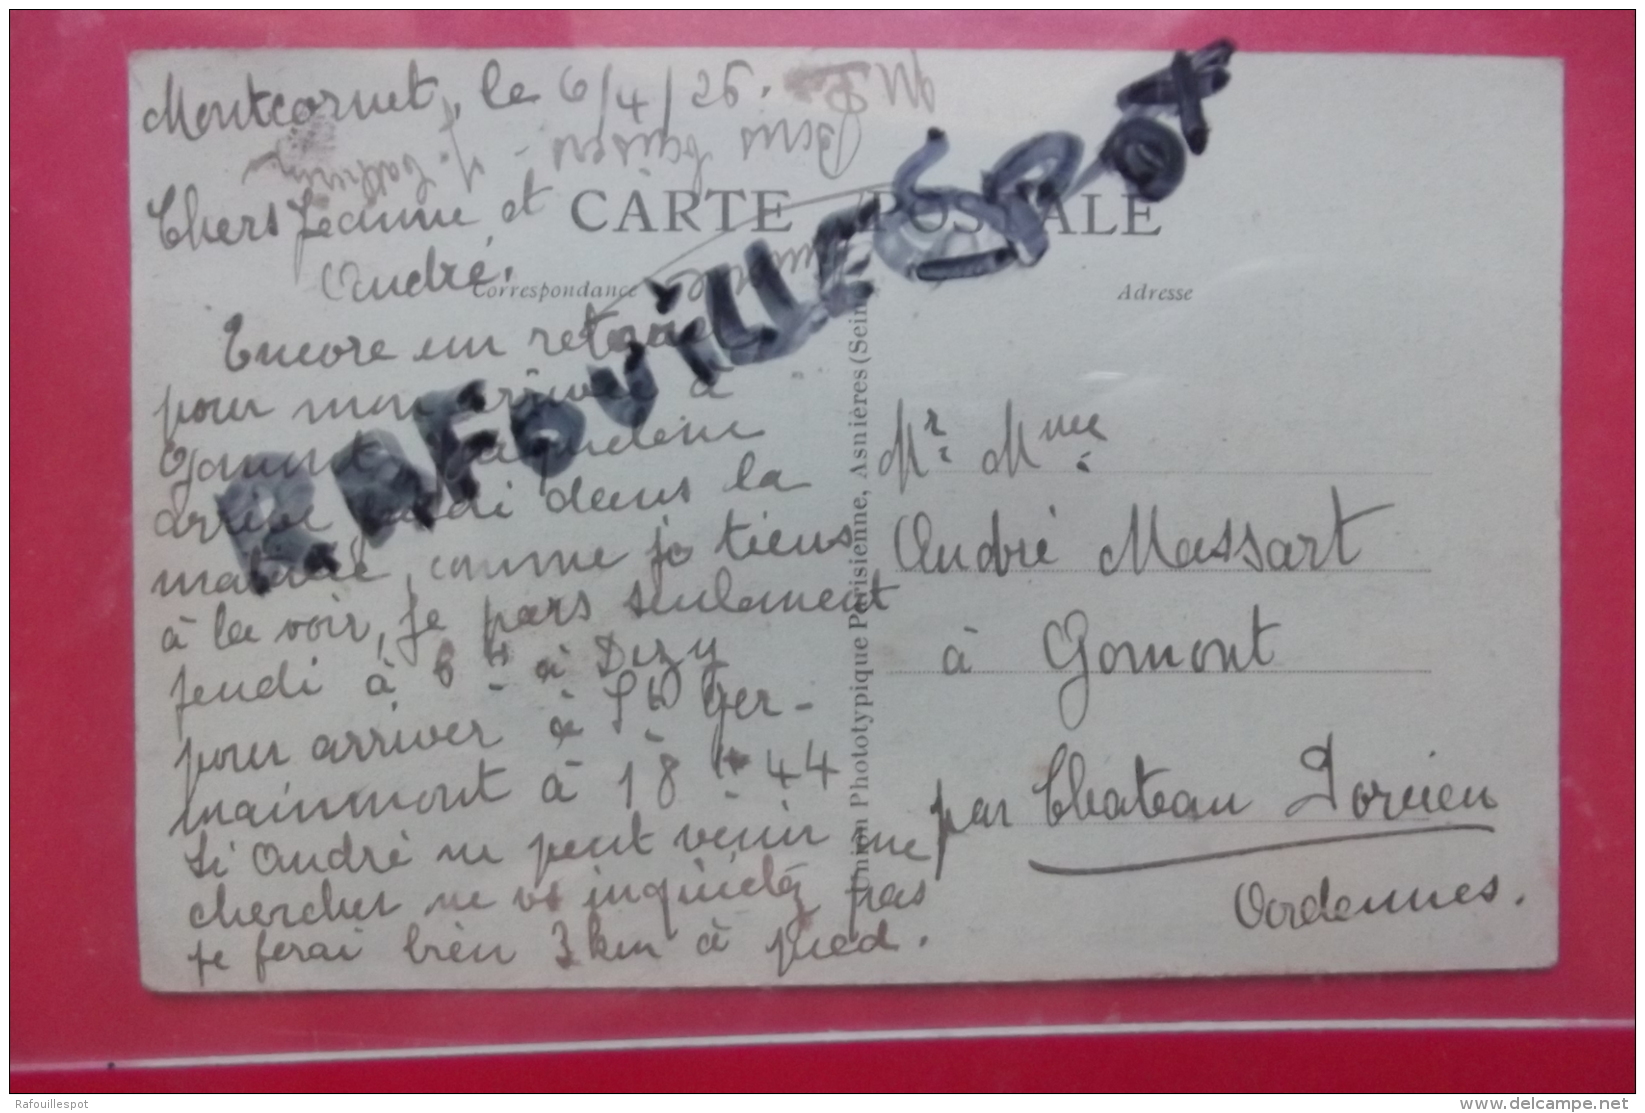 Montcornet, le 6/4/26.
Bons baisers -
Chers Jeanne et
André.
CARTE POSTALE
Correspondance
Adresse
RAFOUILLESPOT
Encore un retard
pour mon arrivée à
Gomont,
arrive jeudi dans la
matinée, comme je tiens
à la voir, je pars seulement
jeudi à 6 H à Dizy
pour arriver à St Ger-
mainmont à 18 H 44
Si André ne peut venir me
chercher ne vs inquiétez pas
je ferai bien 3 km à pied.
Union Phototypique Parisienne, Asnières (Sein
Mr. Mme.
André Massart
à Gomont
par Château Porcien
Ardennes.
Rafouillespot
delcampe.net